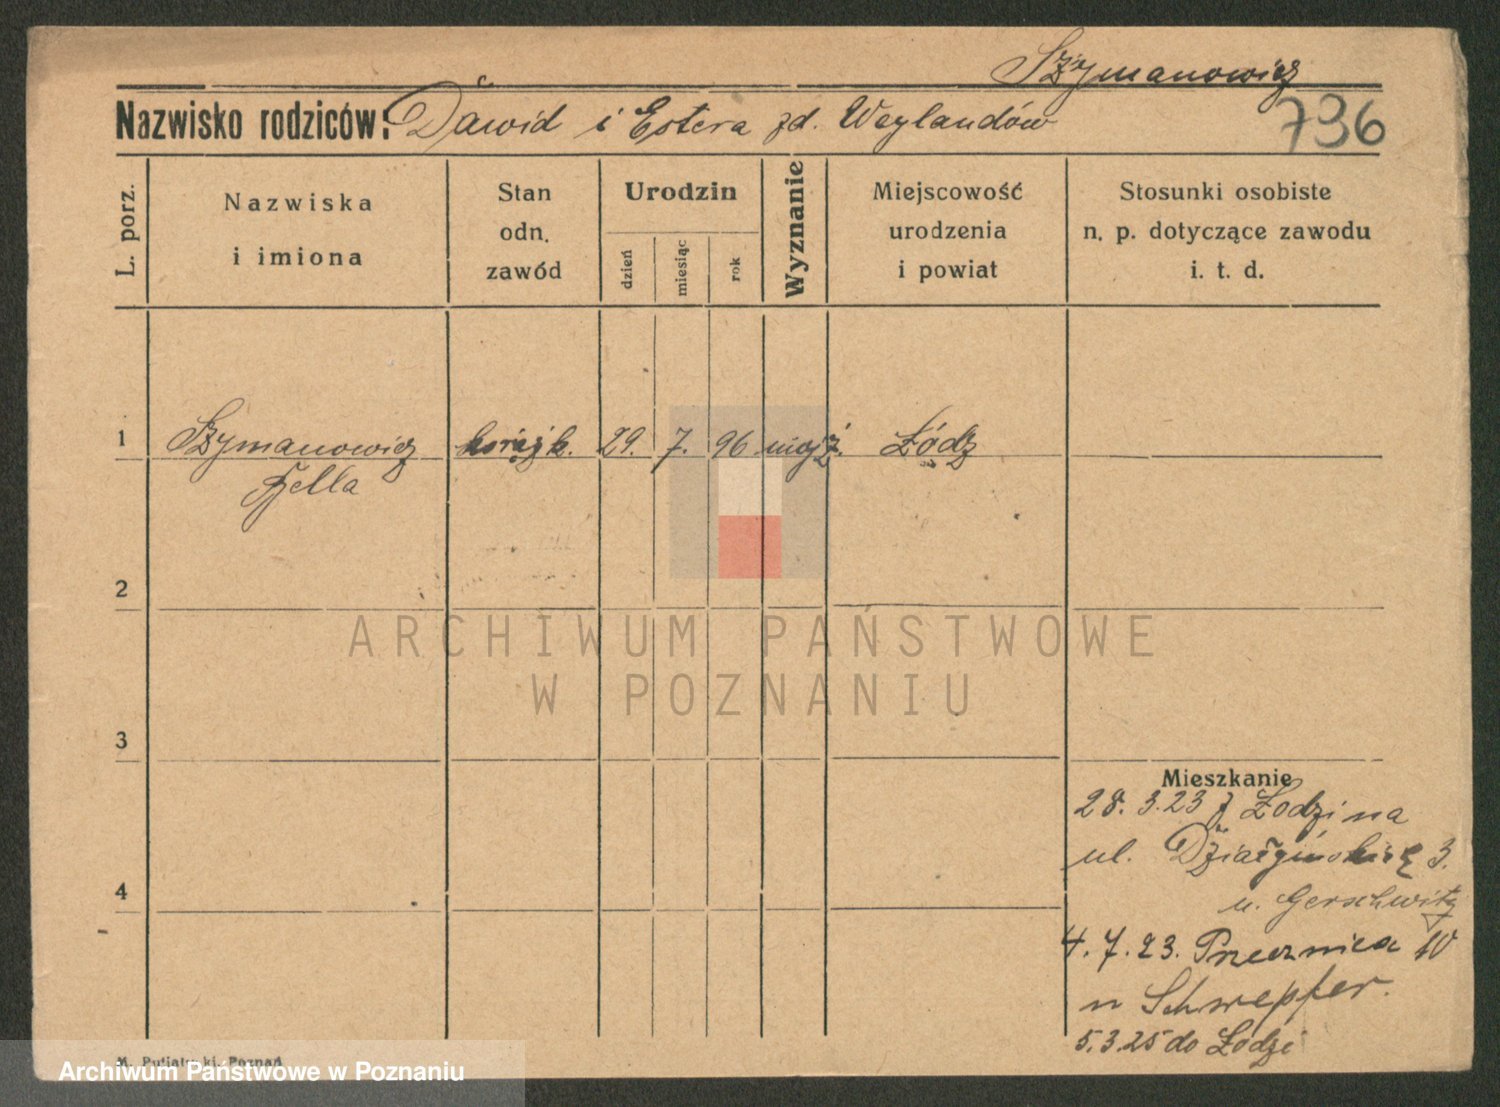 Szymanowicz
Nazwisko rodziców: Dawid i Estera zd. Weylandów
736
L. porz.
Nazwiska
i imiona
Stan
odn.
zawód
Urodzin
dzień
miesiąc
rok
Wyznanie
Miejscowość
urodzenia
i powiat
Stosunki osobiste
n. p. dotyczące zawodu
i. t. d.
1 Szymanowicz 29. 7. 96 mojż. Łódz
Hella
2
3
4
Mieszkanie
28. 3.23 z Łodzi na
ul. Działyńskich 3.
u. Gerschwitz
4. 7. 23. Przecznica 10
u Schwepfer.
5.3.25 do Łodzi
M. Putiatycki, Poznań
ARCHIWUM PAŃSTWOWE
W POZNANIU
Archiwum Państwowe w Poznaniu